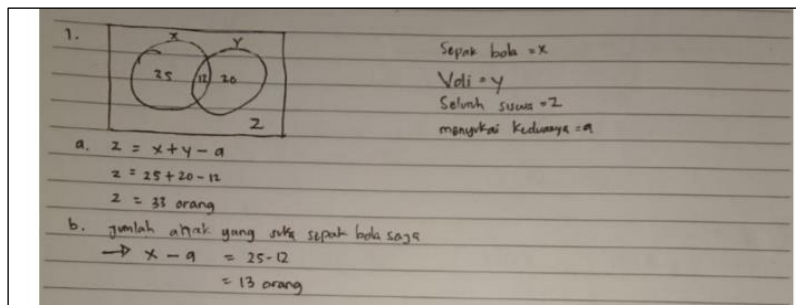 1.
X Y
25 12 20
Z
Sepak bola = X
Voli = Y
Seluruh siswa = Z
menyukai keduanya = a
a. Z = x + y - a
Z = 25 + 20 - 12
Z = 33 orang
b. Jumlah anak yang suka sepak bola saja
→ x - a = 25 - 12
= 13 orang